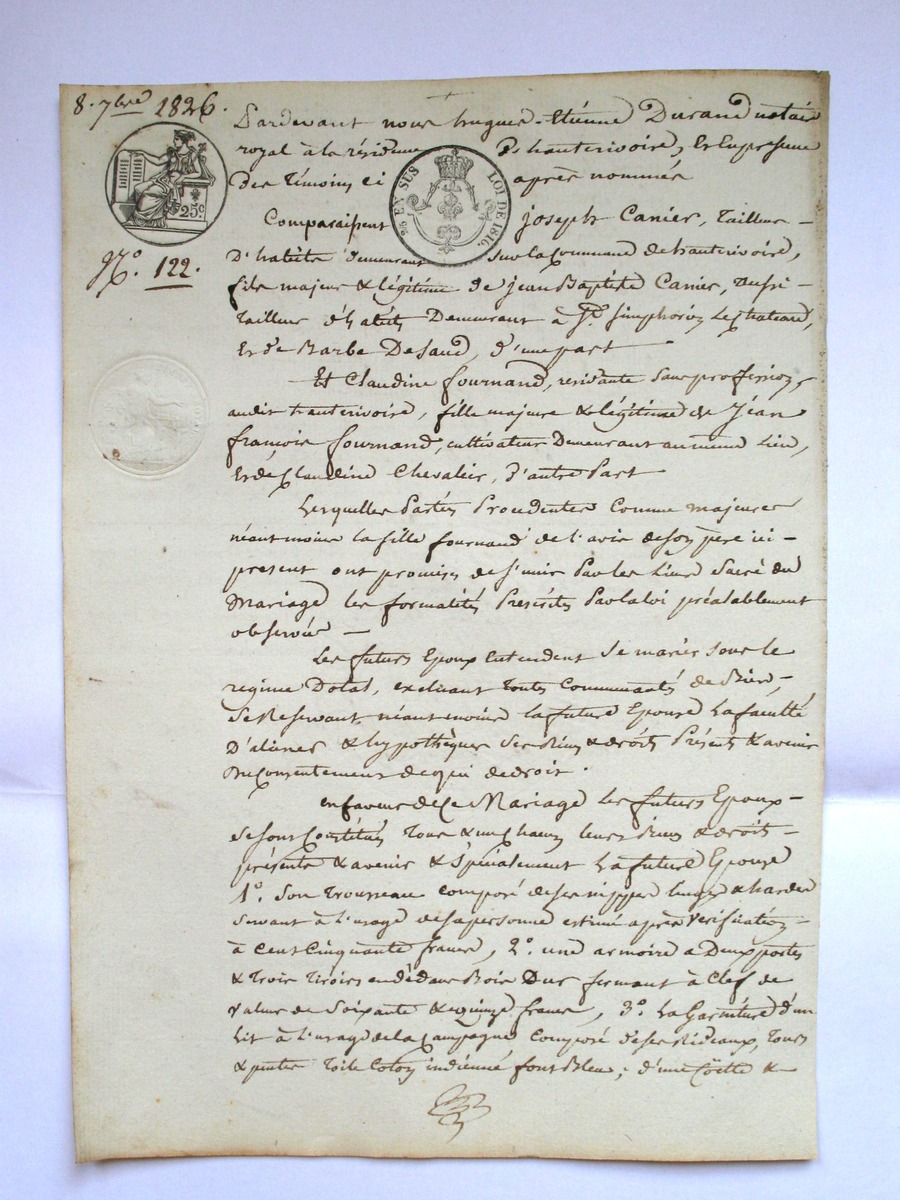 8. 7bre 1826.
Pardevant nous hugues-Etiénne Durand notaire
royal à la résidence D'hauterivoire, Et En presence
Des Témoins ci après nommés
25c
25c EN SUS LOI DE 1816.
Comparaissent joseph Canier, Tailleur
D'habits demeurant sur la Commune de hauterivoire,
No. 122.
fils majeur & légitime de jean Baptiste Canier, aussi
Tailleur d'habits Demeurant à St. Simphorien Le chateau,
Et de Barbe Desaud, d'une part
Et Claudine fournand, residante Sans profession
audit hauterivoire, fille majeure & légitime de Jéan
françois fournand, cultivateur Demeurant au même Lieu,
Et de Claudine Chevalier, D'autre Part
Lesquelles Partés Procedentes Comme majeures
néantmoins la fille fournand de l'avis de son père ici
present ont promis de s'unir Par les Liens Sacré du
Mariage les formalités Préscrites Par la loi préalablement
observées
Les futurs Epoux Entendent Se marier sous le
regime Dotal, excluant Toutes Communautés de Biens,
se Reservant néantmoins la future Epouse La faculté
D'aliéner & hypothèquer ses Biens & droits Présents & avenir
du Consentement de qui de droit.
En faveur de Ce Mariage Les futurs Epoux
se sont Constitués Tous & un Chacun leurs Biens & droits
présents & avenir & Spécialement La future Epouse
1o. Son Trousseau composé de ses nippes linges & hardes
servant à l'usage de sa personne estimé après Vérification
à Cent Cinquante francs, 2o. une armoire a Deux portes
& Trois Tiroirs en dédans Bois Dur fermant à Clef de
valeur de Soixante & quinze francs, 3o. La Garniture d'un
Lit à l'usage de la Campagne Composé de ses Rideaux, Tours
& pentes Toile Coton indienné font Bleu; d'une Coëtte &